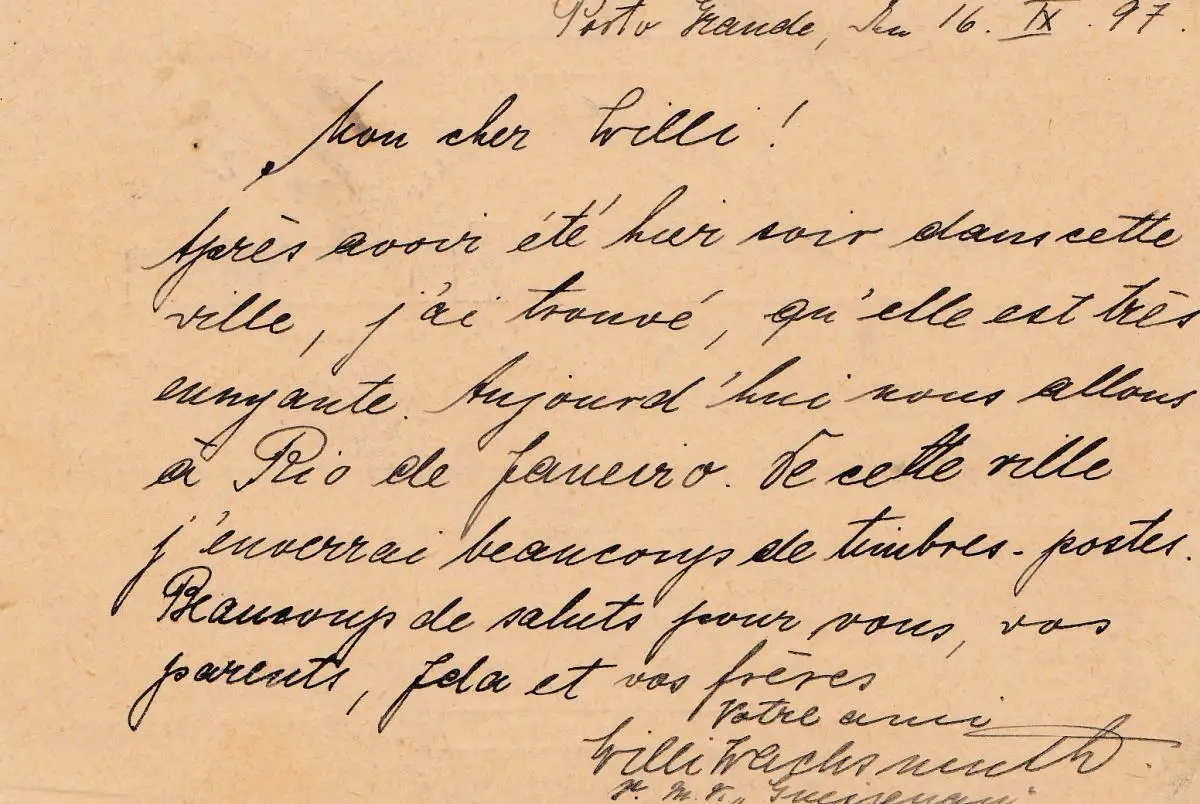 Porto Grande, den 16. IX. 97.
Mon cher Willi!
Après avoir été hier soir dans cette
ville, j'ai trouvé, qu'elle est très
ennyante. Aujourd'hui nous allons
à Rio de Janeiro. De cette ville
j'enverrai beaucoups de timbres-postes.
Beaucoup de saluts pour vous, vos
parents, Ida et vos frères
Votre ami
Willi Wachsmuth.
S. M. S. "Gneisenau"